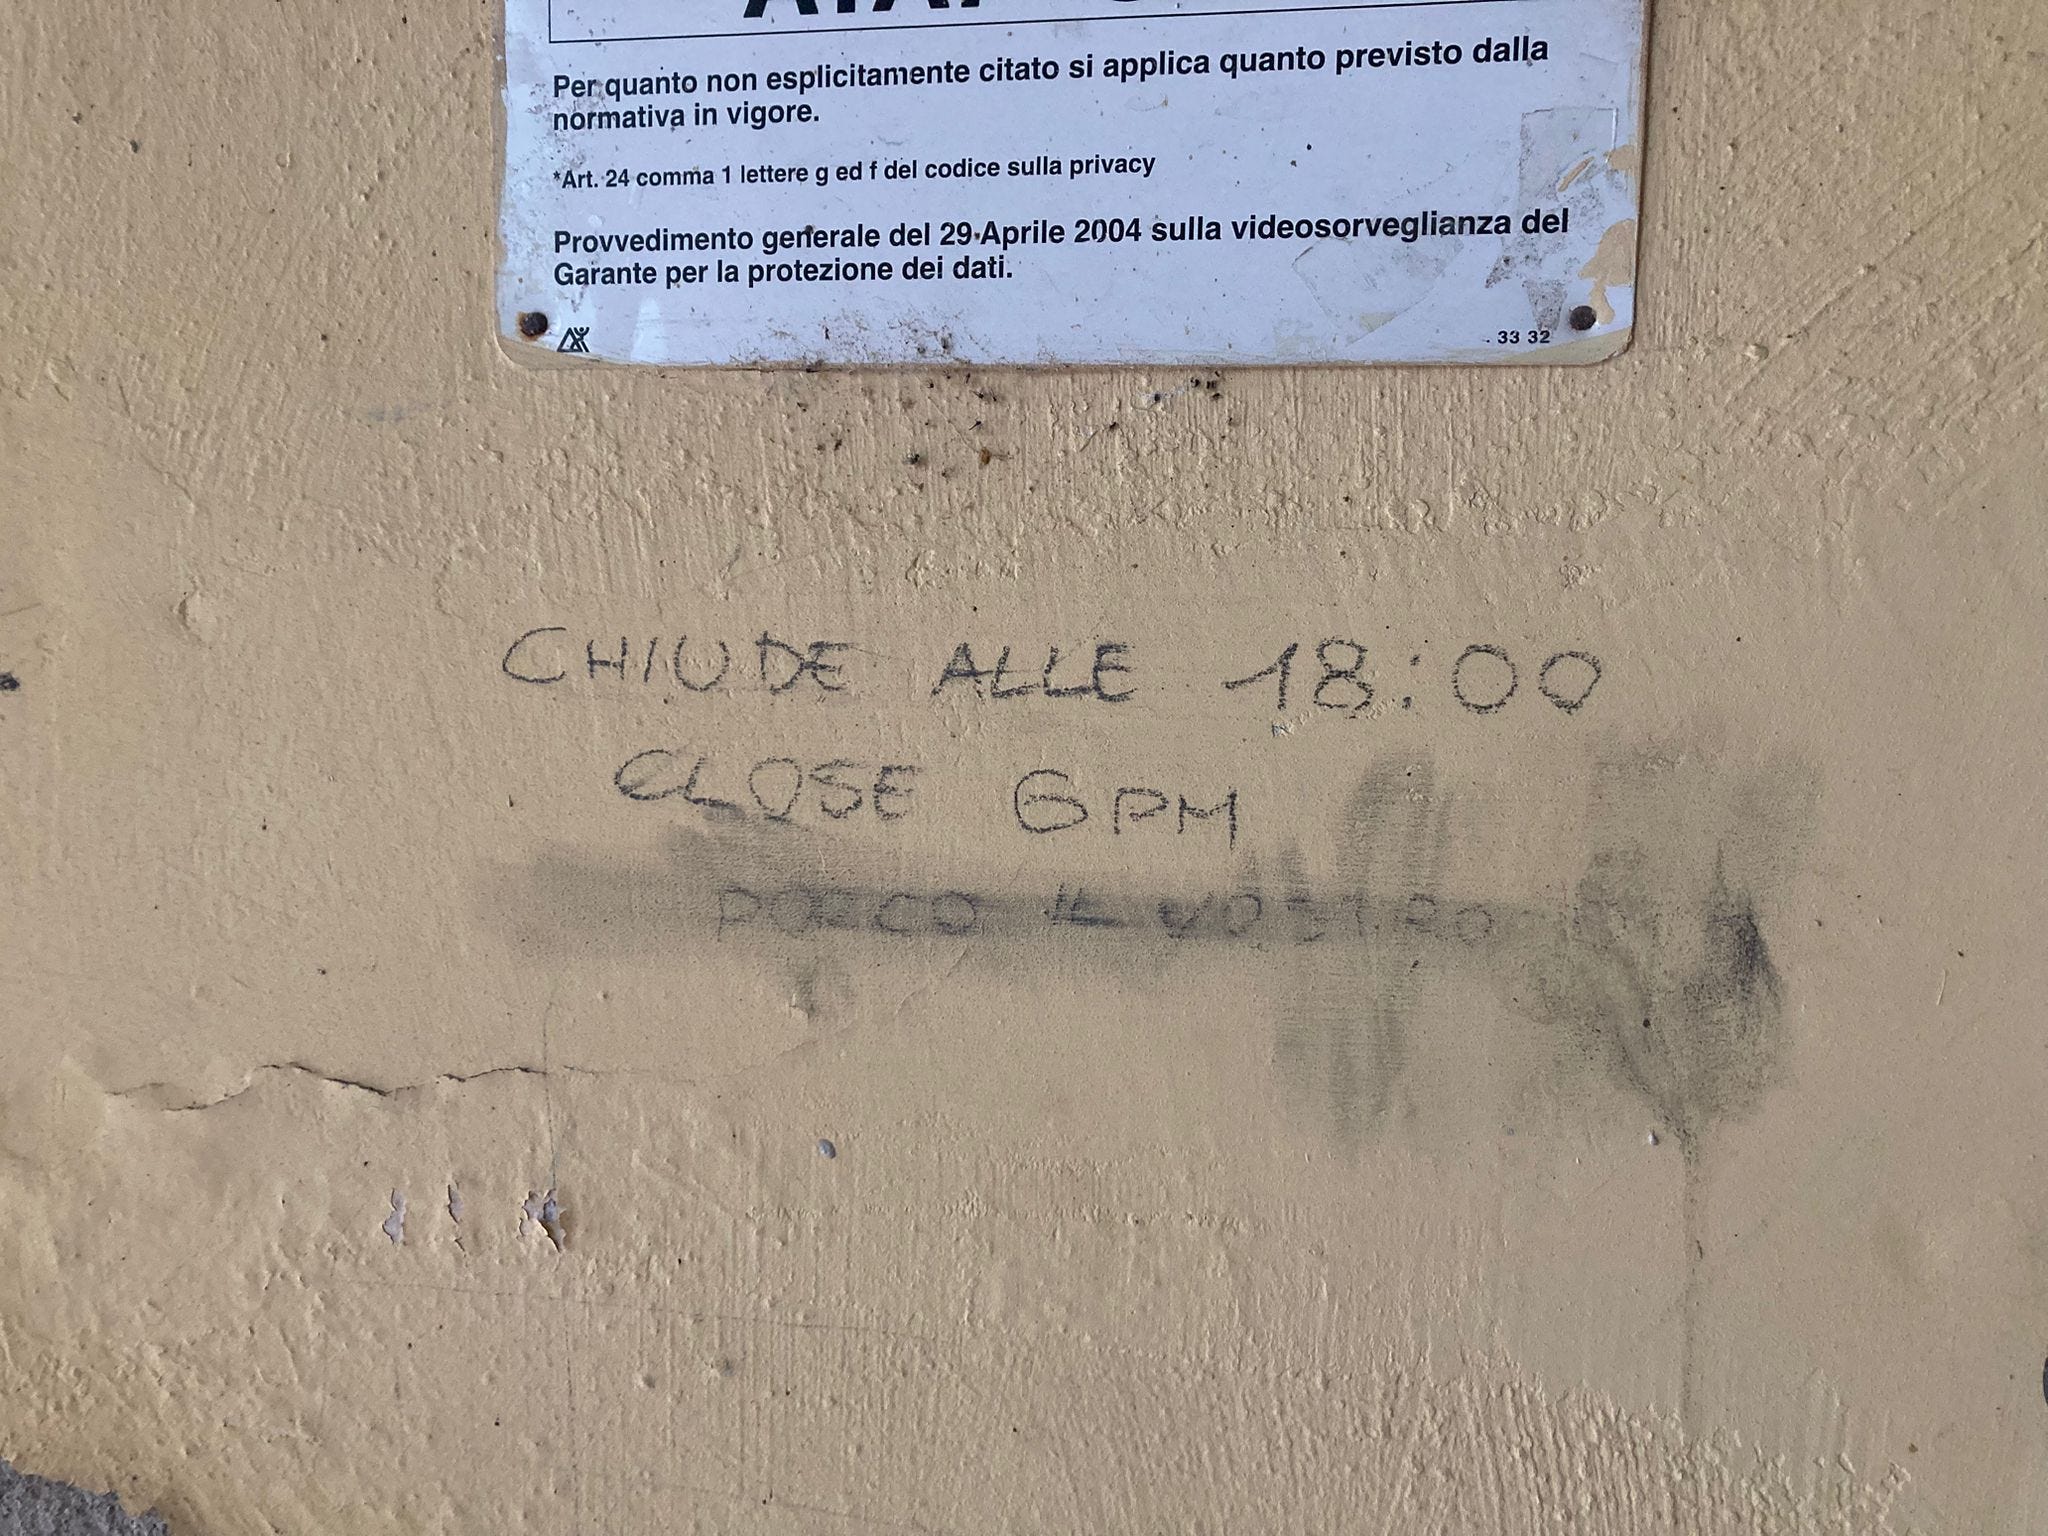 Per quanto non esplicitamente citato si applica quanto previsto dalla
normativa in vigore.
*Art. 24 comma 1 lettere g ed f del codice sulla privacy
Provvedimento generale del 29 Aprile 2004 sulla videosorveglianza del
Garante per la protezione dei dati.
33 32
CHIUDE ALLE 18:00
CLOSE 6 PM
PORCO IL VOSTRO